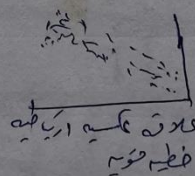 علاقة عكسية ارتباطية
خطية قوية